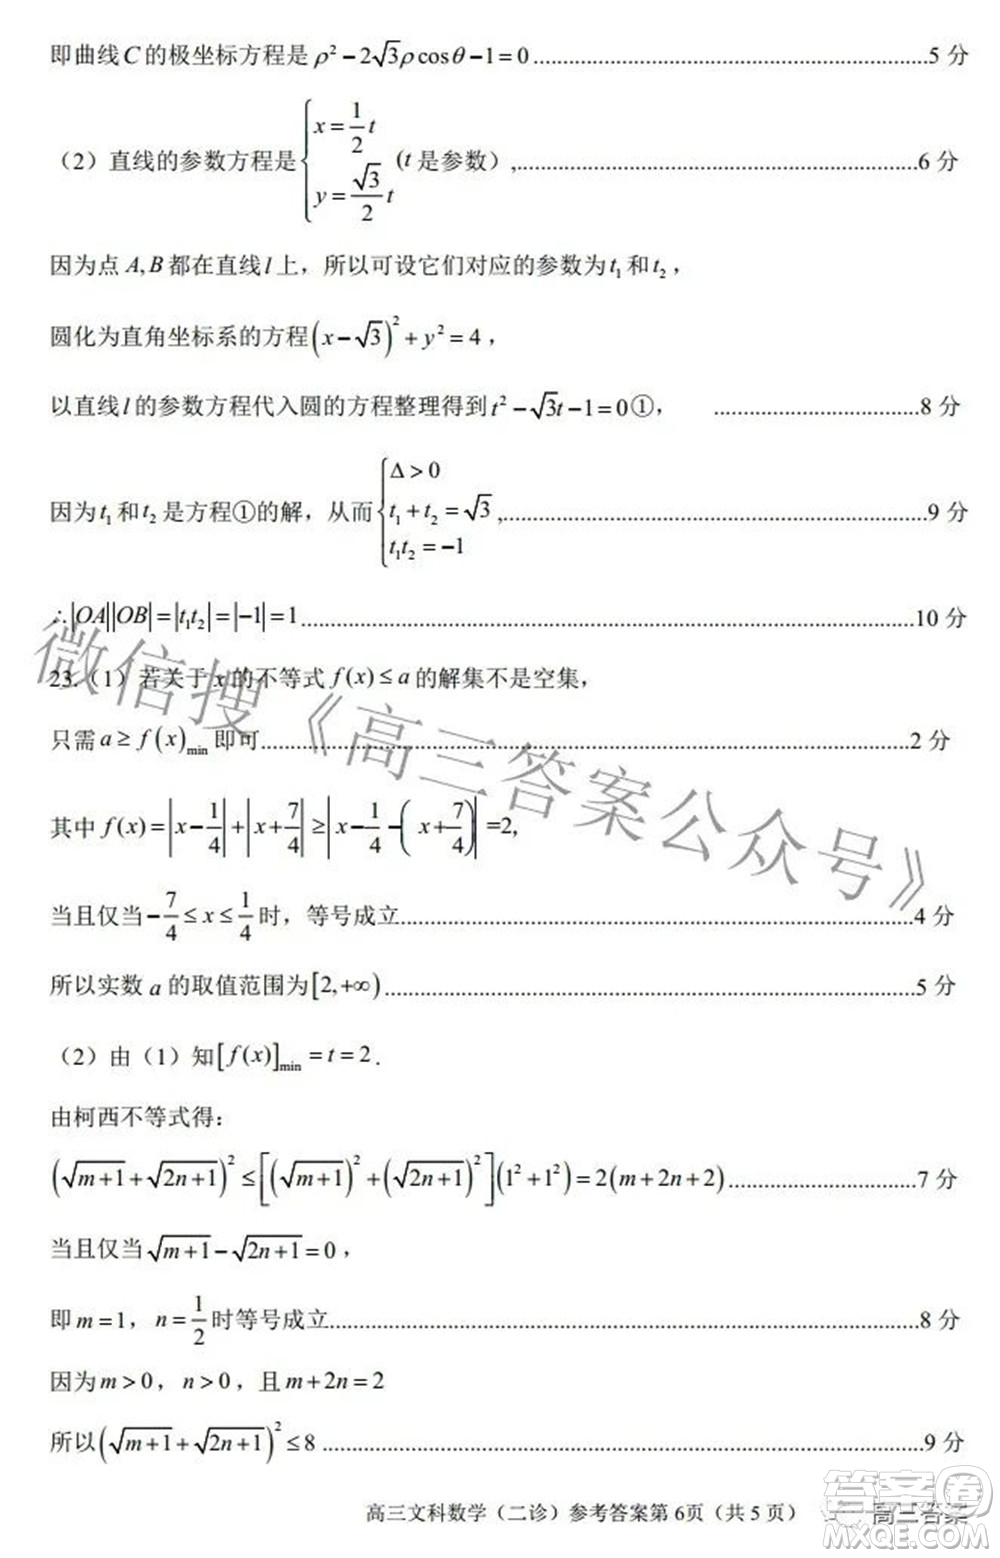 即曲线C的极坐标方程是ρ²－2√3ρcosθ－1=0......5 分
（2）直线的参数方程是{x=1/2 t, y=√3/2 t (t 是参数）,......6 分
因为点 A,B 都在直线 l 上，所以可设它们对应的参数为 t₁ 和 t₂，
圆化为直角坐标系的方程(x－√3)²+y²=4，
以直线 l 的参数方程代入圆的方程整理得到 t²－√3t－1=0①，......8 分
因为 t₁ 和 t₂ 是方程①的解，从而{Δ>0, t₁+t₂=√3, t₁t₂=－1,......9 分
∴|OA||OB|=|t₁t₂|=|－1|=1......10 分
23.（1）若关于 x 的不等式 f(x)≤a 的解集不是空集，
只需 a≥f(x)min 即可......2 分
其中 f(x)=|x－1/4|+|x+7/4|≥|x－1/4－(x+7/4)|=2,
当且仅当－7/4≤x≤1/4 时，等号成立......4 分
所以实数 a 的取值范围为[2,+∞)......5 分
（2）由（1）知[f(x)]min=t=2.
由柯西不等式得：
(√(m+1)+√(2n+1))²≤[(√(m+1))²+(√(2n+1))²](1²+1²)=2(m+2n+2)......7 分
当且仅当√(m+1)－√(2n+1)=0，
即 m=1，n=1/2 时等号成立......8 分
因为 m>0，n>0，且 m+2n=2
所以(√(m+1)+√(2n+1))²≤8......9 分
高三文科数学（二诊）参考答案第 6页（共 5 页）
微信搜《高三答案公众号》
高三答案
答案圈